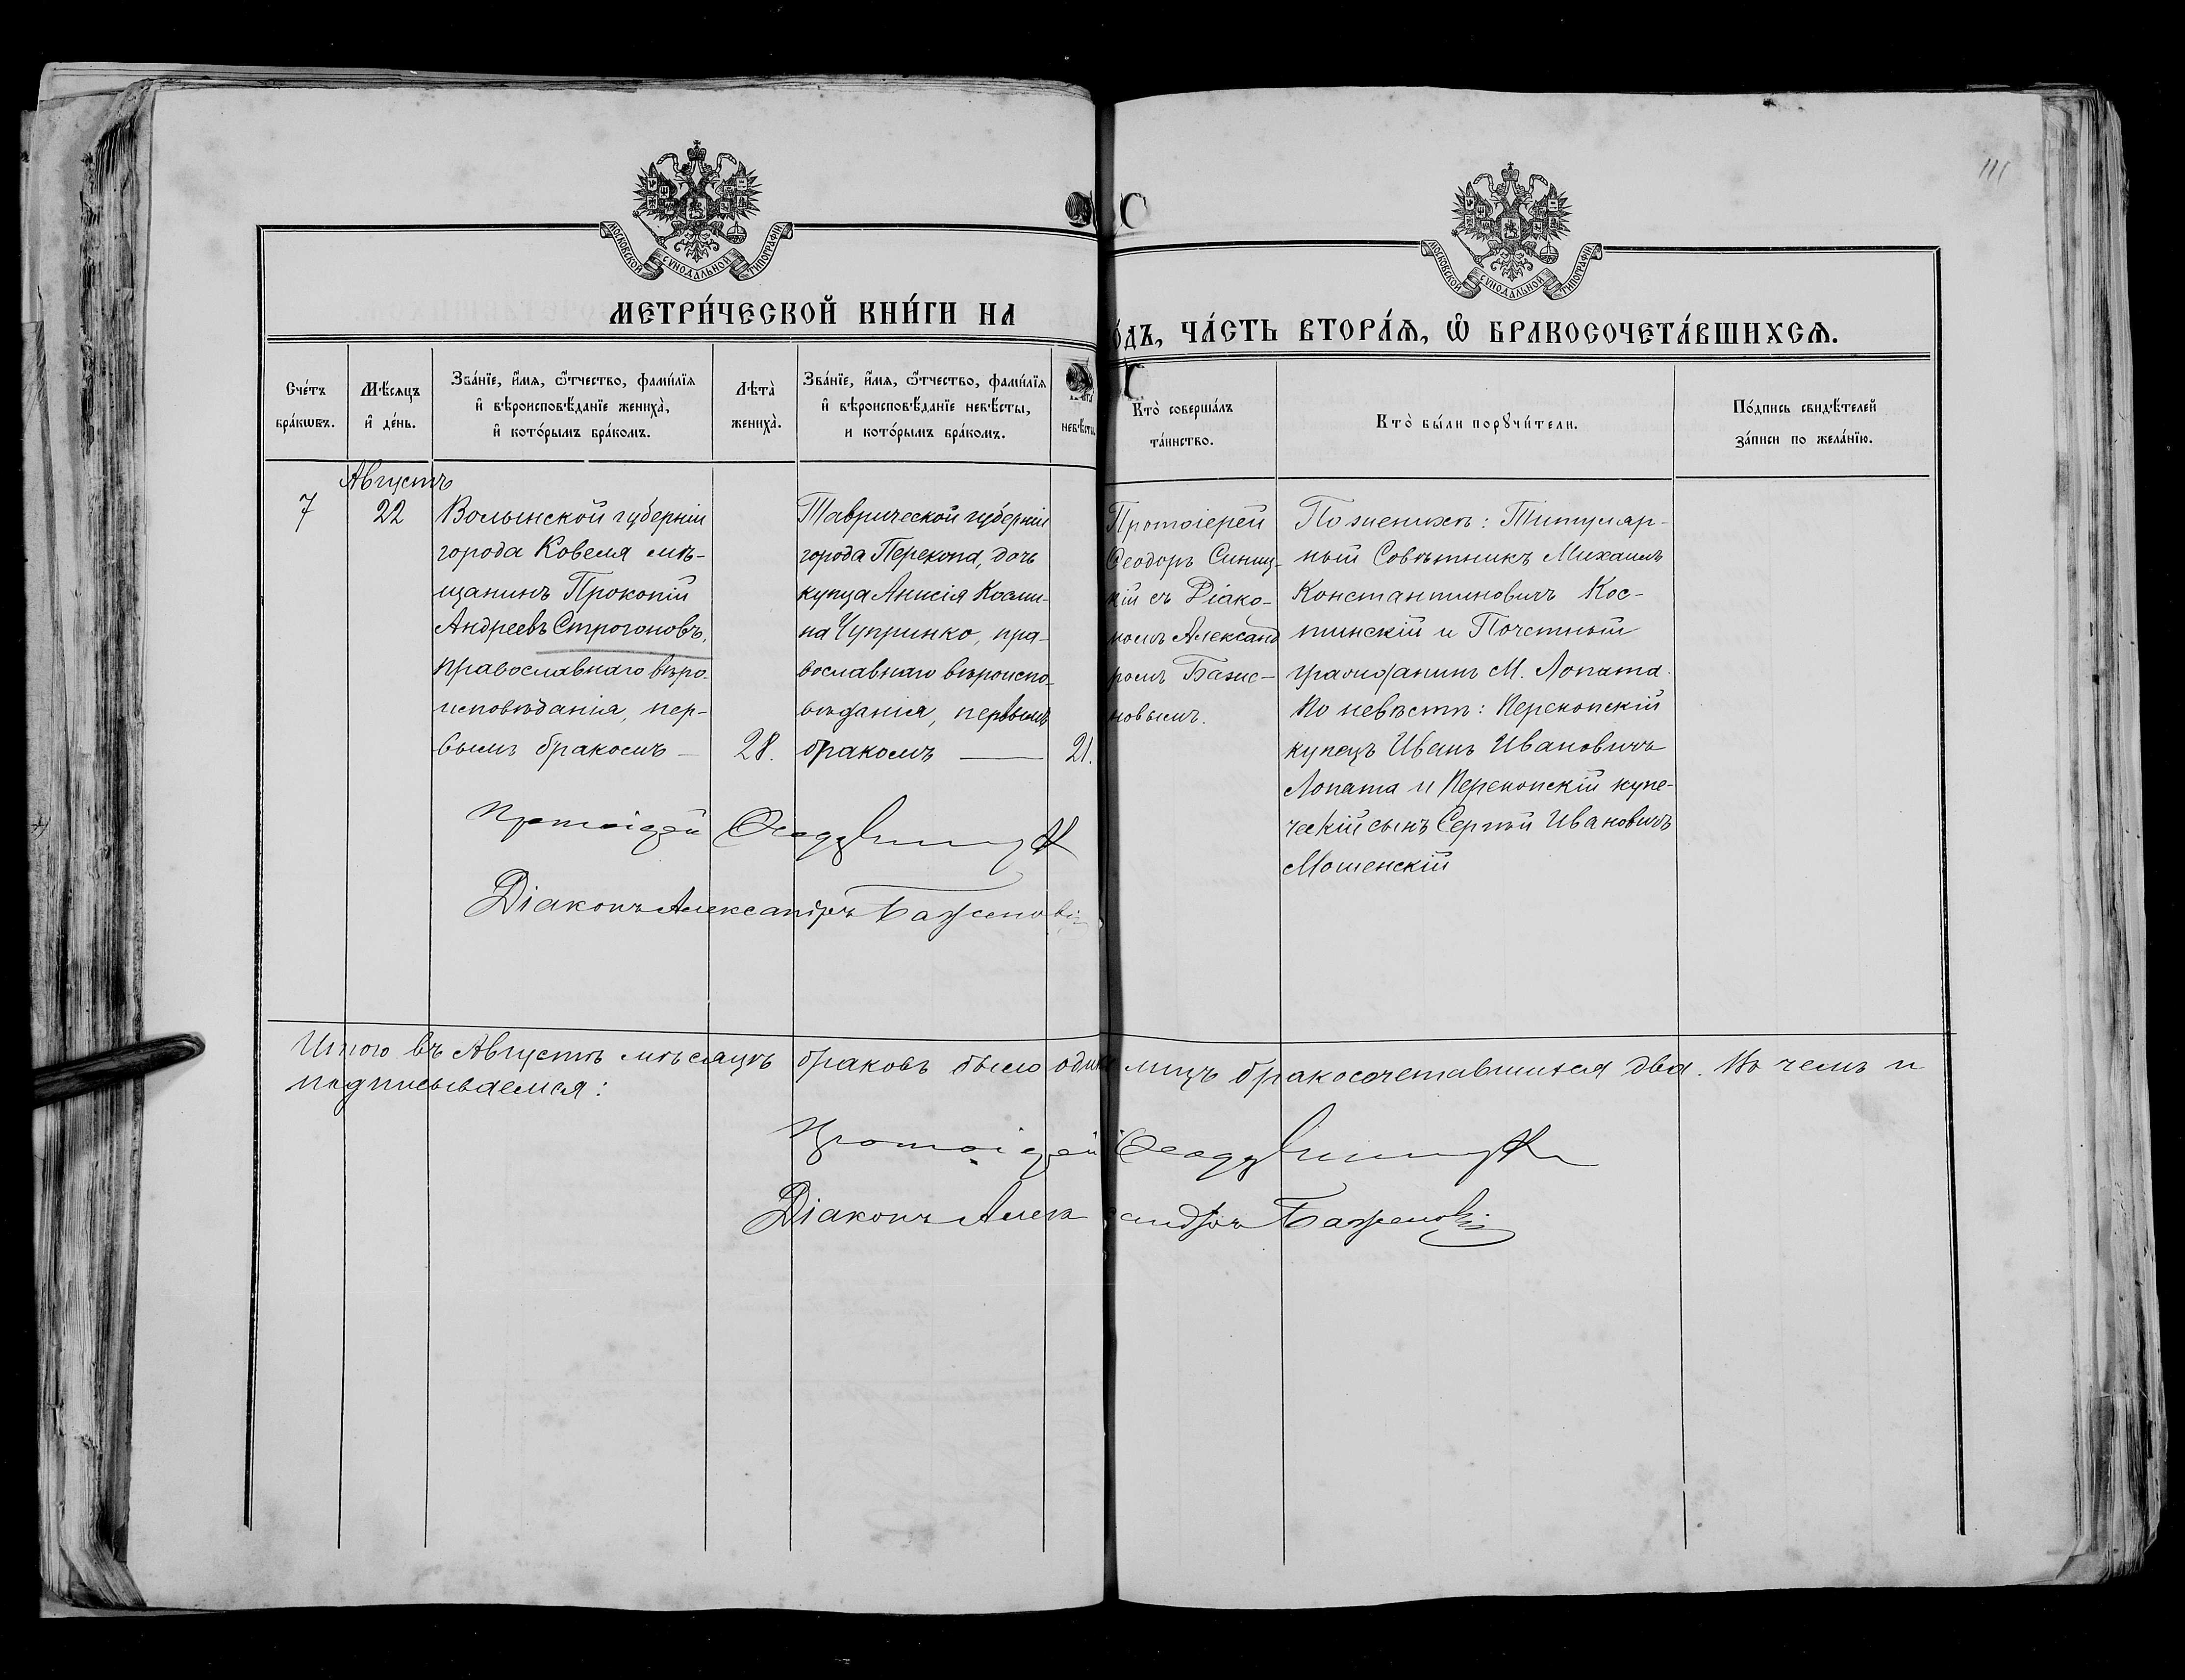 111
МОСКОВСКОЙ СУНОДАЛЬНОЙ ТИПОГРАФІИ
МОСКОВСКОЙ СУНОДАЛЬНОЙ ТИПОГРАФІИ
МЕТРИ́ЧЕСКОЙ КНИ́ГИ НА
О́ДЪ, ЧА́СТЬ ВТОРА́Ѧ, Ѡ҆ БРАКОСОЧЕТА́ВШИХСѦ.
Сче́тъ
бра́кѡвъ.
Мѣ́сѧцъ
и҆ де́нь.
Зва́нїе, и҆́мѧ, ѻ҆́тчество, фами́лїѧ
и҆ вѣроисповѣ́данїе жениха̀,
и҆ кото́рымъ бра́комъ.
Лѣта̀
жениха̀.
Зва́нїе, и҆́мѧ, ѻ҆́тчество, фами́лїѧ
и҆ вѣроисповѣ́данїе невѣ́сты,
и кото́рымъ бра́комъ.
невѣ́сты.
Кто̀ соверша́лъ
та́инство.
Кто̀ бы́ли порꙋчи́тели.
По́дпись свидѣ́телей
за́писи по жела́нїю.
Августъ
7
22
Волынской губерніи
города Ковеля мѣ-
щанинъ Прокопій
Андреевъ Строгоновъ,
православнаго вѣро-
исповѣданія, пер-
вымъ бракомъ —
28.
Таврической губерніи
города Перекопа, дочь
купца Анисія Косми-
на Чупринко, пра-
вославнаго вѣроиспо-
вѣданія, первымъ
бракомъ —
21.
Протоіерей
Ѳеодоръ Синиц-
кій съ Діако-
номъ Александ
ромъ Баже-
новымъ.
По женихѣ: Титуляр-
ный Совѣтникъ Михаилъ
Константиновичъ Кос-
тинскій и Почетный
гражданинъ М. Лопата.
По невѣстѣ: Перекопскій
купецъ Иванъ Ивановичъ
Лопата и Перекопскій купе-
ческій сынъ Сергѣй Ивановичъ
Мошенскій
Протоіерей Ѳеодоръ Синицкій
Діаконъ Александръ Баженовъ
Итого въ Августѣ мѣсяцѣ браковъ было одинъ лицъ бракосочетавшихся два. Въ чемъ и
подписываемся:
Протоіерей Ѳеодоръ Синицкій
Діаконъ Александръ Баженовъ